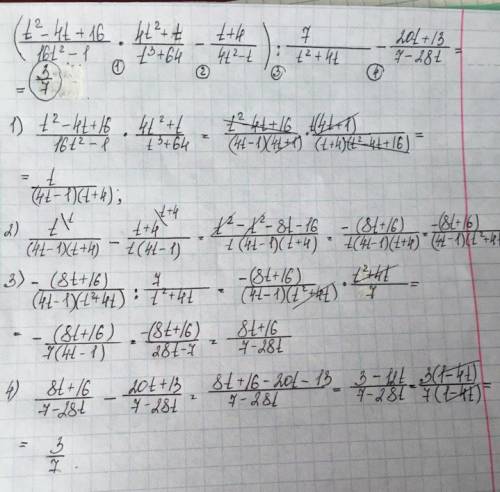 ( (t²-4t+16)/(16t²-1) · (4t²+t)/(t³+64) - (t+4)/(4t²-t) ) : 7/(t²+4t) - (20t+13)/(7-28t) =
① ② ③ ④
= 3/7
1) (t²-4t+16)/(16t²-1) · (4t²+t)/(t³+64) = (t²-4t+16)/((4t-1)(4t+1)) · t(4t+1)/((t+4)(t²-4t+16)) =
= t/((4t-1)(t+4));
2) t\t/((4t-1)(t+4)) - t+4\t+4/(t(4t-1)) = (t²-t²-8t-16)/(t(4t-1)(t+4)) = -(8t+16)/(t(4t-1)(t+4)) = -(8t+16)/((4t-1)(t²+4t))
3) -(8t+16)/((4t-1)(t²+4t)) : 7/(t²+4t) = -(8t+16)/((4t-1)(t²+4t)) · (t²+4t)/7 =
= -(8t+16)/(7(4t-1)) = -(8t+16)/(28t-7) = (8t+16)/(7-28t)
4) (8t+16)/(7-28t) - (20t+13)/(7-28t) = (8t+16-20t-13)/(7-28t) = (3-12t)/(7-28t) = 3(1-4t)/(7(1-4t)) =
= 3/7.